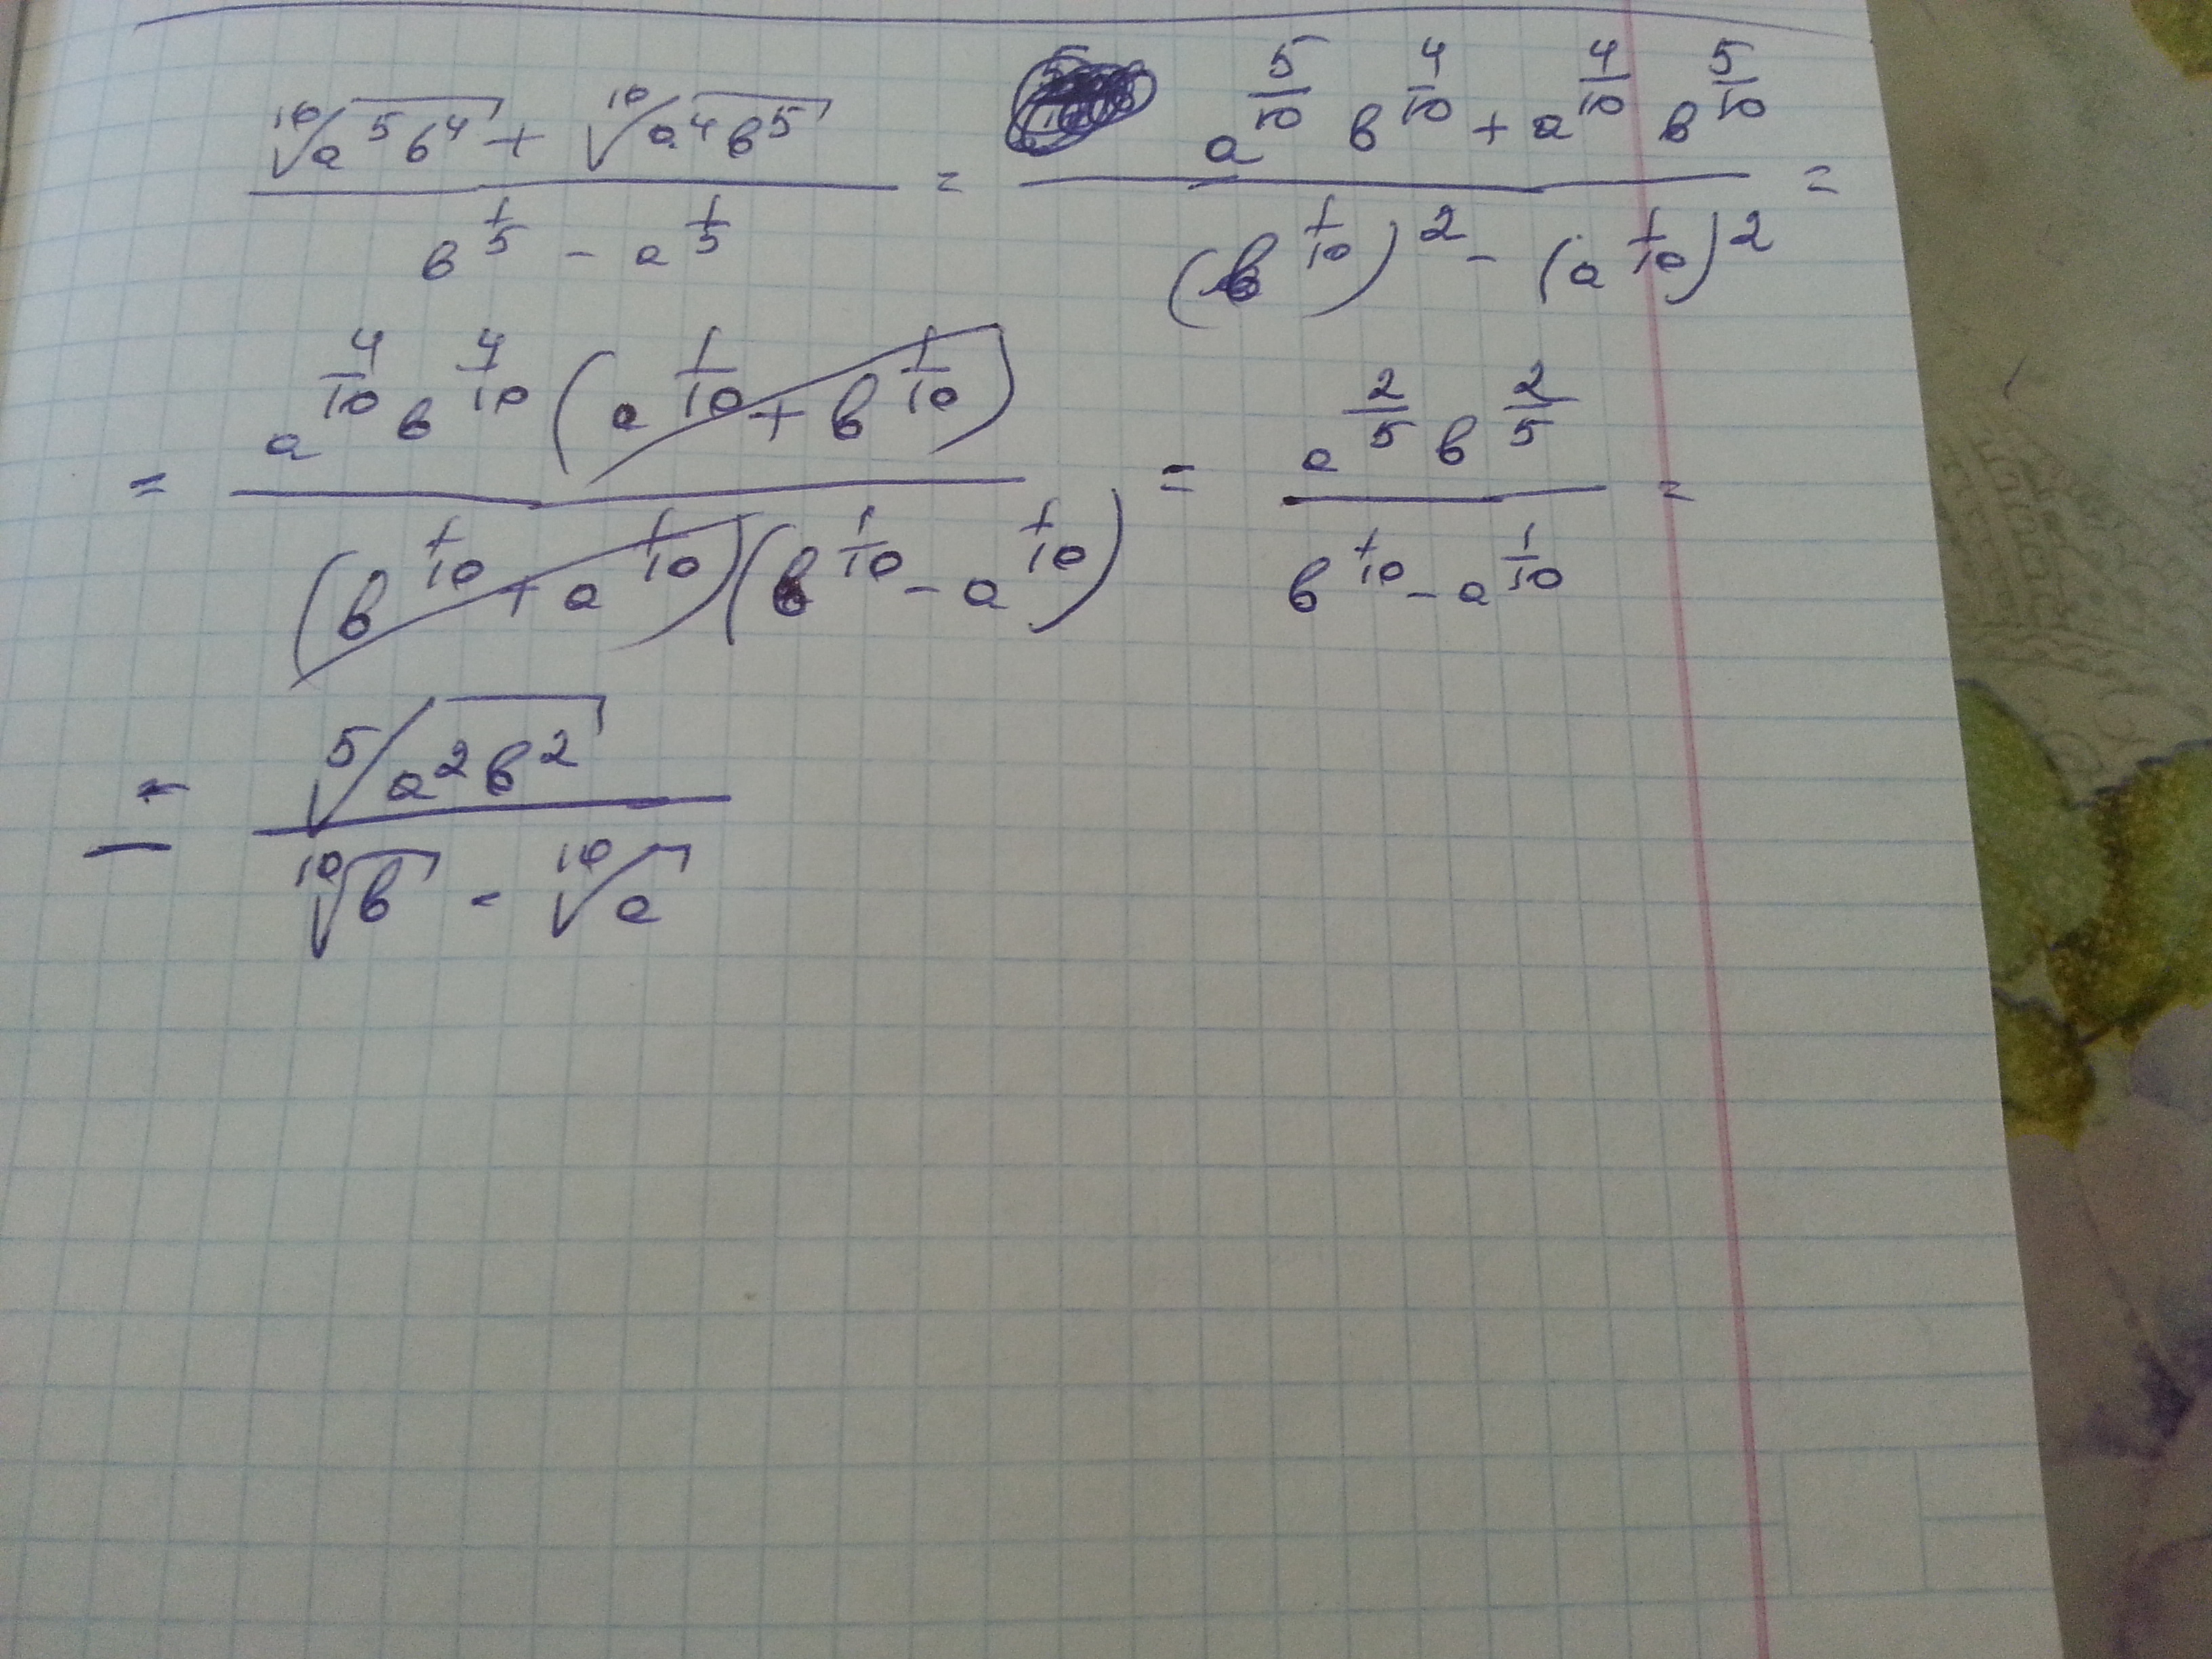 $\frac{\sqrt[10]{a^5 b^4} + \sqrt[10]{a^4 b^5}}{b^{\frac{1}{5}} - a^{\frac{1}{5}}} = \frac{a^{\frac{5}{10}} b^{\frac{4}{10}} + a^{\frac{4}{10}} b^{\frac{5}{10}}}{(b^{\frac{1}{10}})^2 - (a^{\frac{1}{10}})^2} =$
$= \frac{a^{\frac{4}{10}} b^{\frac{4}{10}} (a^{\frac{1}{10}} + b^{\frac{1}{10}})}{(b^{\frac{1}{10}} + a^{\frac{1}{10}})(b^{\frac{1}{10}} - a^{\frac{1}{10}})} = \frac{a^{\frac{2}{5}} b^{\frac{2}{5}}}{b^{\frac{1}{10}} - a^{\frac{1}{10}}} =$
$= \frac{\sqrt[5]{a^2 b^2}}{\sqrt[10]{b} - \sqrt[10]{a}}$